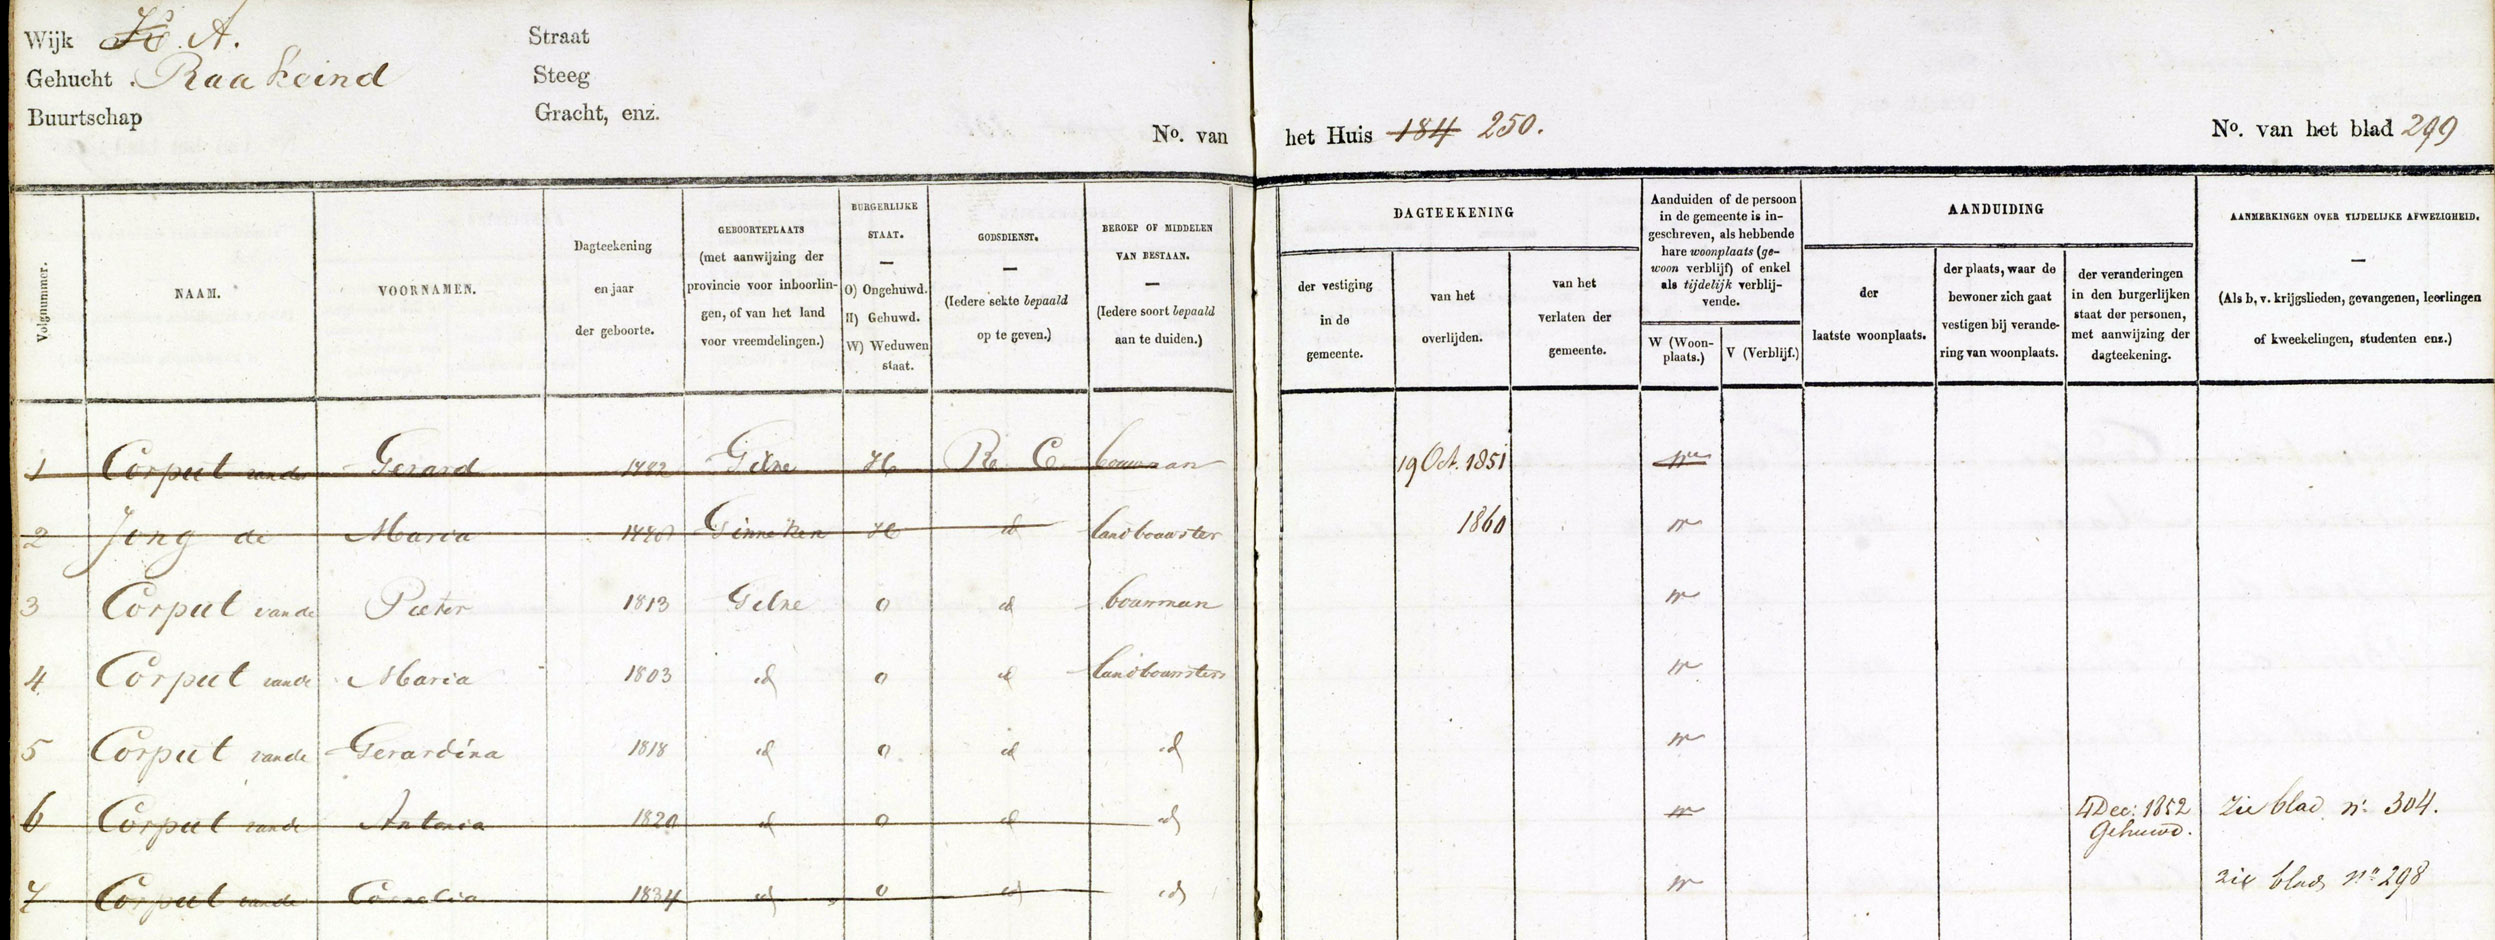 Wijk A.
Straat
Gehucht Raakeind
Steeg
Buurtschap
Gracht, enz.
No. van het Huis 184 250.
No. van het blad 299
Volgnummer.
NAAM.
VOORNAMEN.
Dagteekening en jaar der geboorte.
GEBOORTEPLAATS (met aanwijzing der provincie voor inboorlingen, of van het land voor vreemdelingen.)
BURGERLIJKE STAAT. — O) Ongehuwd. H) Gehuwd. W) Weduwen staat.
GODSDIENST. — (Iedere sekte bepaald op te geven.)
BEROEP OF MIDDELEN VAN BESTAAN. — (Iedere soort bepaald aan te duiden.)
DAGTEEKENING
der vestiging in de gemeente.
van het overlijden.
van het verlaten der gemeente.
Aanduiden of de persoon in de gemeente is ingeschreven, als hebbende hare woonplaats (gewoon verblijf) of enkel als tijdelijk verblijvende.
W (Woonplaats.)
V (Verblijf.)
AANDUIDING
der laatste woonplaats.
der plaats, waar de bewoner zich gaat vestigen bij verandering van woonplaats.
der veranderingen in den burgerlijken staat der personen, met aanwijzing der dagteekening.
AANMERKINGEN OVER TIJDELIJKE AFWEZIGHEID. — (Als b, v. krijgslieden, gevangenen, leerlingen of kweekelingen, studenten enz.)
1 Corput vander Gerard 1782 Gilze H R C bouwman 19 Oct. 1851 W
2 Jong de Maria Ginneken H id landbouwster 1860 W
3 Corput vande Pieter 1813 Gilze O id bouwman W
4 Corput vande Maria 1803 id O id landbouwster W
5 Corput vande Gerardina 1818 id O id id W
6 Corput vande Antonia 1820 id O id id W 4 Dec: 1852 Gehuwd. Zie blad no. 304.
7 Corput vande Cornelia 1834 id O id id W zie blad no 298